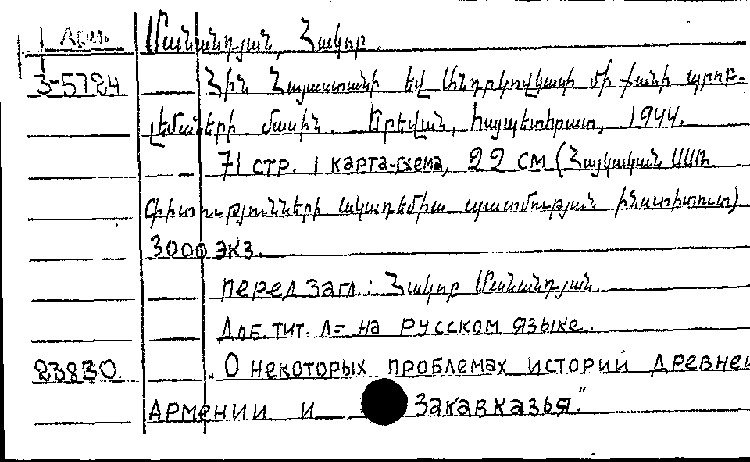 Մանանդյան, Հակոբ.
3-5724 Հին Հայաստանի եվ Անդրկովկասի մի քանի պրոբ-
լեմաների մասին. Երեվան, հայպետհրատ, 1944.
71 стр. 1 карта-схема, 22 см (Հայկական ՍՍՌ
Գիտությունների ակադեմիա պատմության ինստիտուտ)
3000 экз.
перед загл.: Հակոբ Մանանդյան.
Доб. тит. л= на русском языке.
23830 . О некоторых проблемах истории древней
Армении и Закавказья."